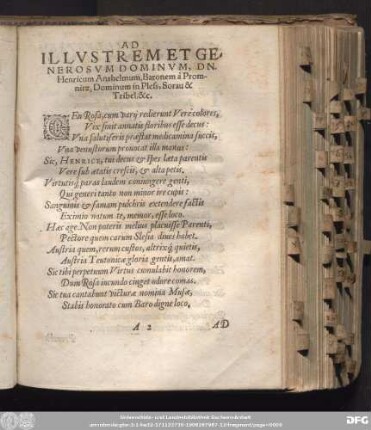 AD
ILLVSTREM ET GE-
NEROSVM DOMINVM, DN.
Henricum Anshelmum, Baronem â Prom-
nitz, Dominum in Pless, Sorau &
Tribel, &c.
EN Rosa, cum varij redierunt Vere colores,
Vix sinit annatis floribus esse decus:
Vna salutiferis præstat medicamina succis,
Vna venustorum provocat illa manus:
Sic, HENRICE, tui decus & spes læta parentis
Vere sub ætatis crescis, & alta petis.
Virtutisq́ paras laudem coniungere genti,
Qui generi tanto non minor ire cupis:
Sanguinis & famam pulchris extendere factis
Eximiô natum te, memor, esse loco.
Hac age. Non poteris melius placuisse Parenti,
Pectore quem carum Slesia dives habet.
Austria quem, rerum custos, altrixq́ quietis,
Austria Teutonicæ gloria gentis, amat.
Sic tibi perpetuum Virtus cumulabit honorem,
Dum Rosa iucundo cinget odore comas.
Sic tua cantabunt victuræ nomina Musæ,
Stabis honorato cum Baro digne loco,
A 2
AD
Universitäts- und Landesbibliothek Sachsen-Anhalt
DFG